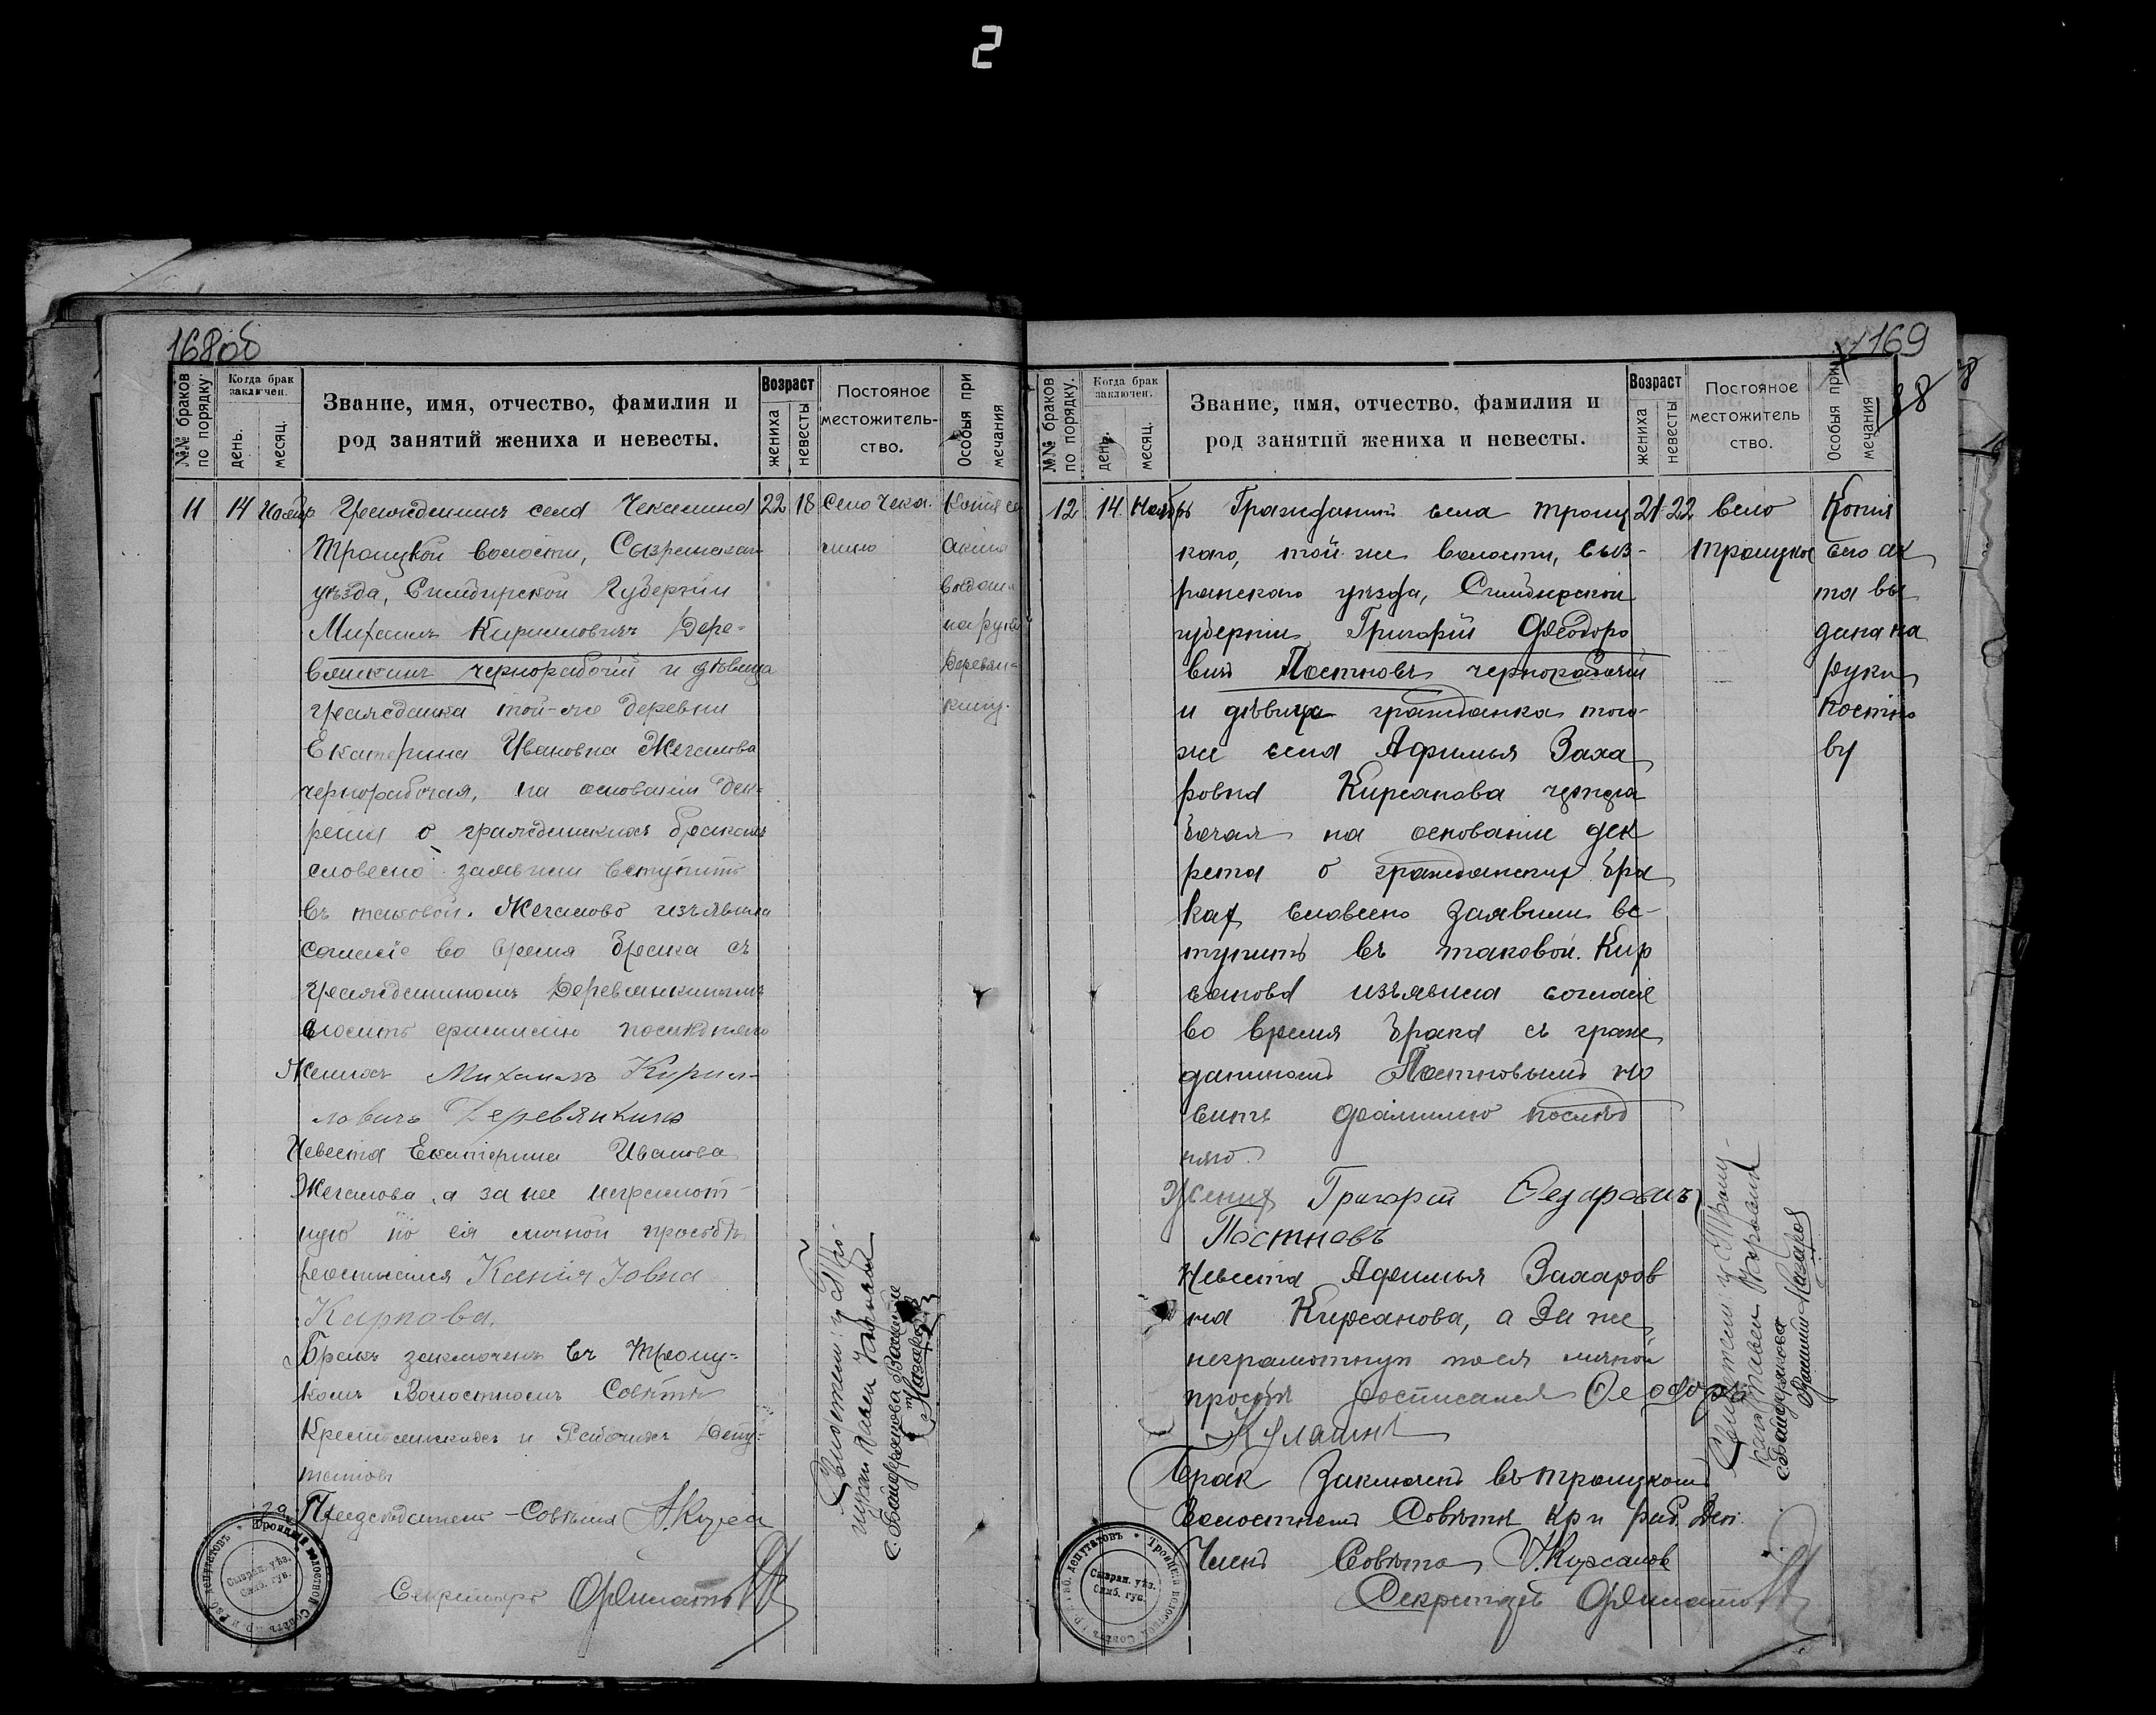 2
168об
№№ браков по порядку.
Когда брак заключен.
день.
месяц.
Звание, имя, отчество, фамилия и
род занятий жениха и невесты.
Возраст
жениха
невесты
Постояное
местожитель-
ство.
Особыя при
мечания
11 14 Ноябр. Гражданинъ села Чекалино 22 18 Село Чека-
Троицкой волости, Сызранскаго
лино
уѣзда, Симбирской Губерніи
Михаилъ Кирилловичъ Дере-
вянкинъ чернорабочій и дѣвица
гражданка той-же деревни
Екатерина Ивановна Жегалова
чернорабочая, на основаніи дек-
рета о гражданскихъ бракахъ
словесно заявили вступить
въ таковой. Жегалово изъявила
согласіе во время брака съ
гражданиномъ Деревянкинымъ
носить фамилію послѣдняго
Женихъ Михаилъ Кирил-
ловичъ Деревянкинъ
Невеста Екатерина Иванова
Жегалова, а за нее неграмот-
ную по ея личной просьбѣ
росписался Ксенія Іовна
Карпова.
Бракъ заключенъ въ Троиц-
комъ Волостномъ Совѣтѣ
Крестьянскихъ и Рабочихъ Депу-
татовъ
Предсѣдатель Совѣта
Секретарь
Копія се
акта
выдана
на руки
Деревян-
кину.
Свидетели:
Павел
с. Байдеряково Василий
Назаров
Троицкій волостной Совѣтъ кр. и раб. депутатовъ
Сызран. уѣз.
Симб. губ.
169
№№ браков по порядку.
Когда брак заключен.
день.
месяц.
Звание, имя, отчество, фамилия и
род занятий жениха и невесты.
Возраст
жениха
невесты
Постояное
местожитель
ство.
Особыя при
мечания
12 14 Ноябрь Гражданин села Троиц 21 22 Село
каго, той же волости, Сыз-
Троицкое
ранскаго уѣзда, Симбирской
губерніи Григорій Феодоро
вичъ Постновъ чернорабочій
и дѣвица гражданка того-
же села Афимья Заха
ровна Кирсанова
на основаніи дек
рета о гражданских бра
ках словесно заявили вс-
тупить въ таковой. Кир
санова изъявила согласіе
во время брака съ граж
даниномъ Постновымъ но
сить фамилию послѣд
няго.
Жених Григорій Федаровичъ
Постновъ
Невеста Афимья Захаров
на Кирсанова, а за не
неграмотную по ея личной
просьбѣ росписался Феодоръ
Брак заключенъ въ Троицкомъ
Волостномъ Совѣтѣ кр и раб. Деп.
Членъ Совѣта Кирсанов
Секретарь
Копія
сего ак
та вы
дана на
руки
Постно
ву
Свидетели: с. Троиц-
каго Павел
с. Байдеряково
Василий Назаров
Троицкій волостной Совѣтъ кр. и раб. депутатовъ
Сызран. уѣз.
Симб. губ.